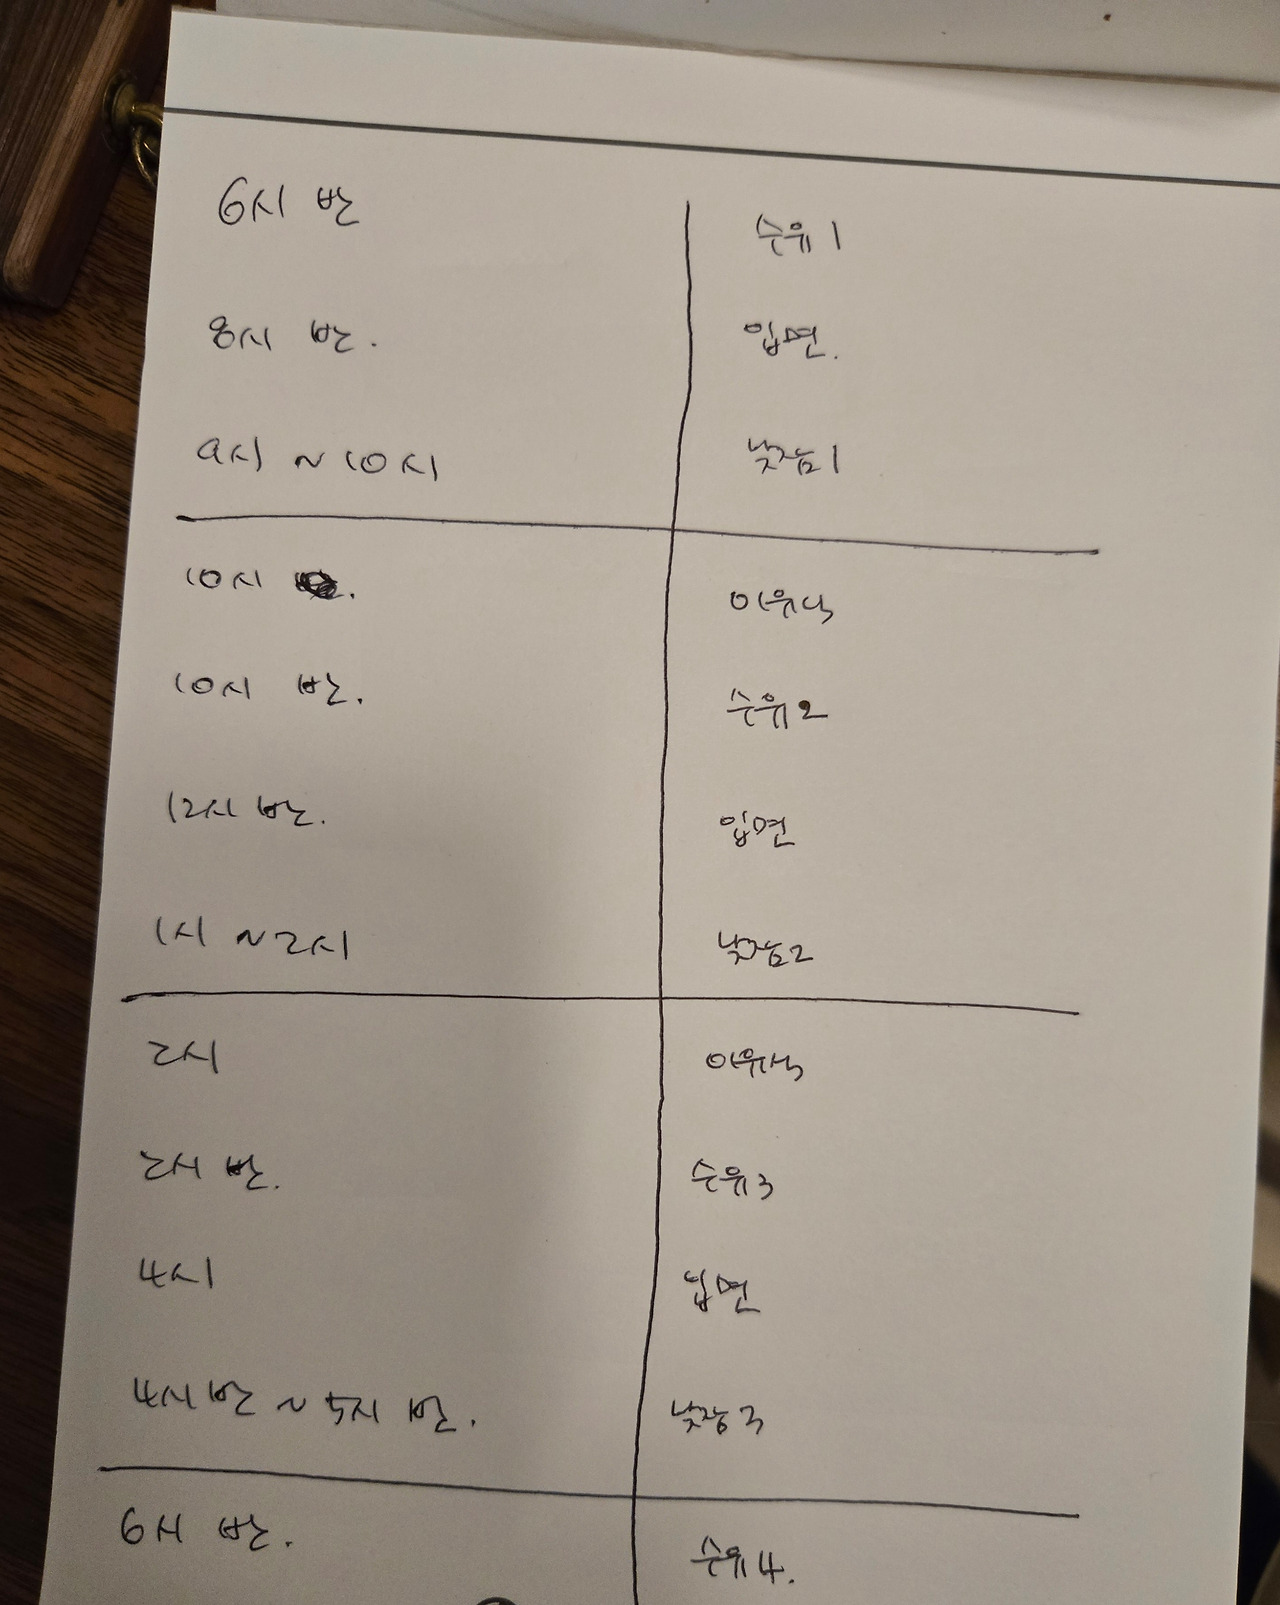 6시 반 수유1
8시 반. 입면.
9시 ~ 10시 낮잠1
10시 이유식
10시 반. 수유2
12시 반. 입면
1시 ~ 2시 낮잠2
2시 이유식
2시 반. 수유3
4시 입면
4시 반 ~ 5시 반. 낮잠3
6시 반. 수유4.